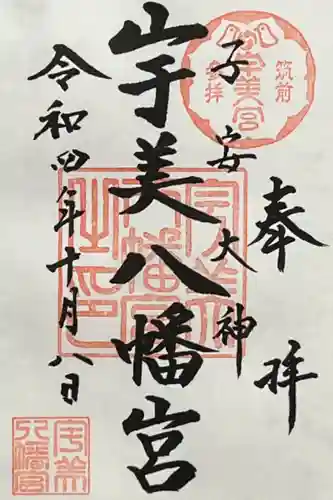 奉拝
子安大神
宇美八幡宮
令和四年十月八日
筑前
宇美宮
参拝
宇美
八幡宮